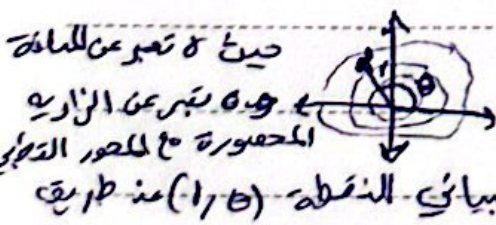 حيث r تعبر عن المسافة
و θ تعبر عن الزاوية
المحصورة مع المحور القطبي
بياني النقطة (r, θ) عن طريق
r
θ